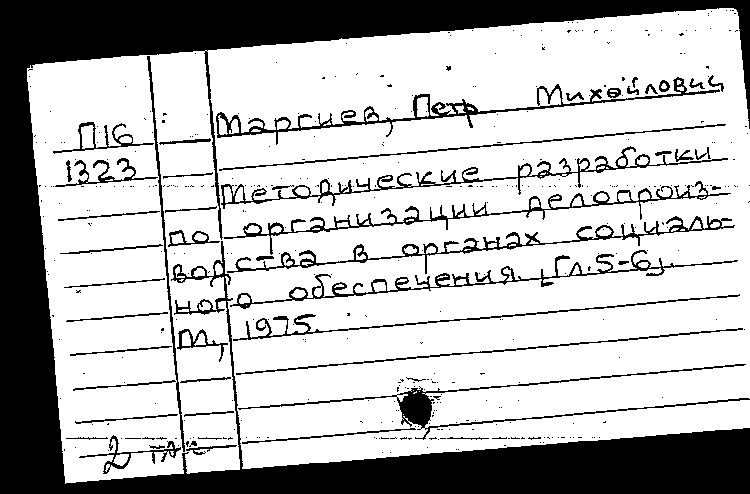 П16 Маргиев, Петр Михайлович
1323
Методические разработки
по организации делопроиз-
водства в органах социаль-
ного обеспечения. [Гл. 5-6].
М., 1975.
2